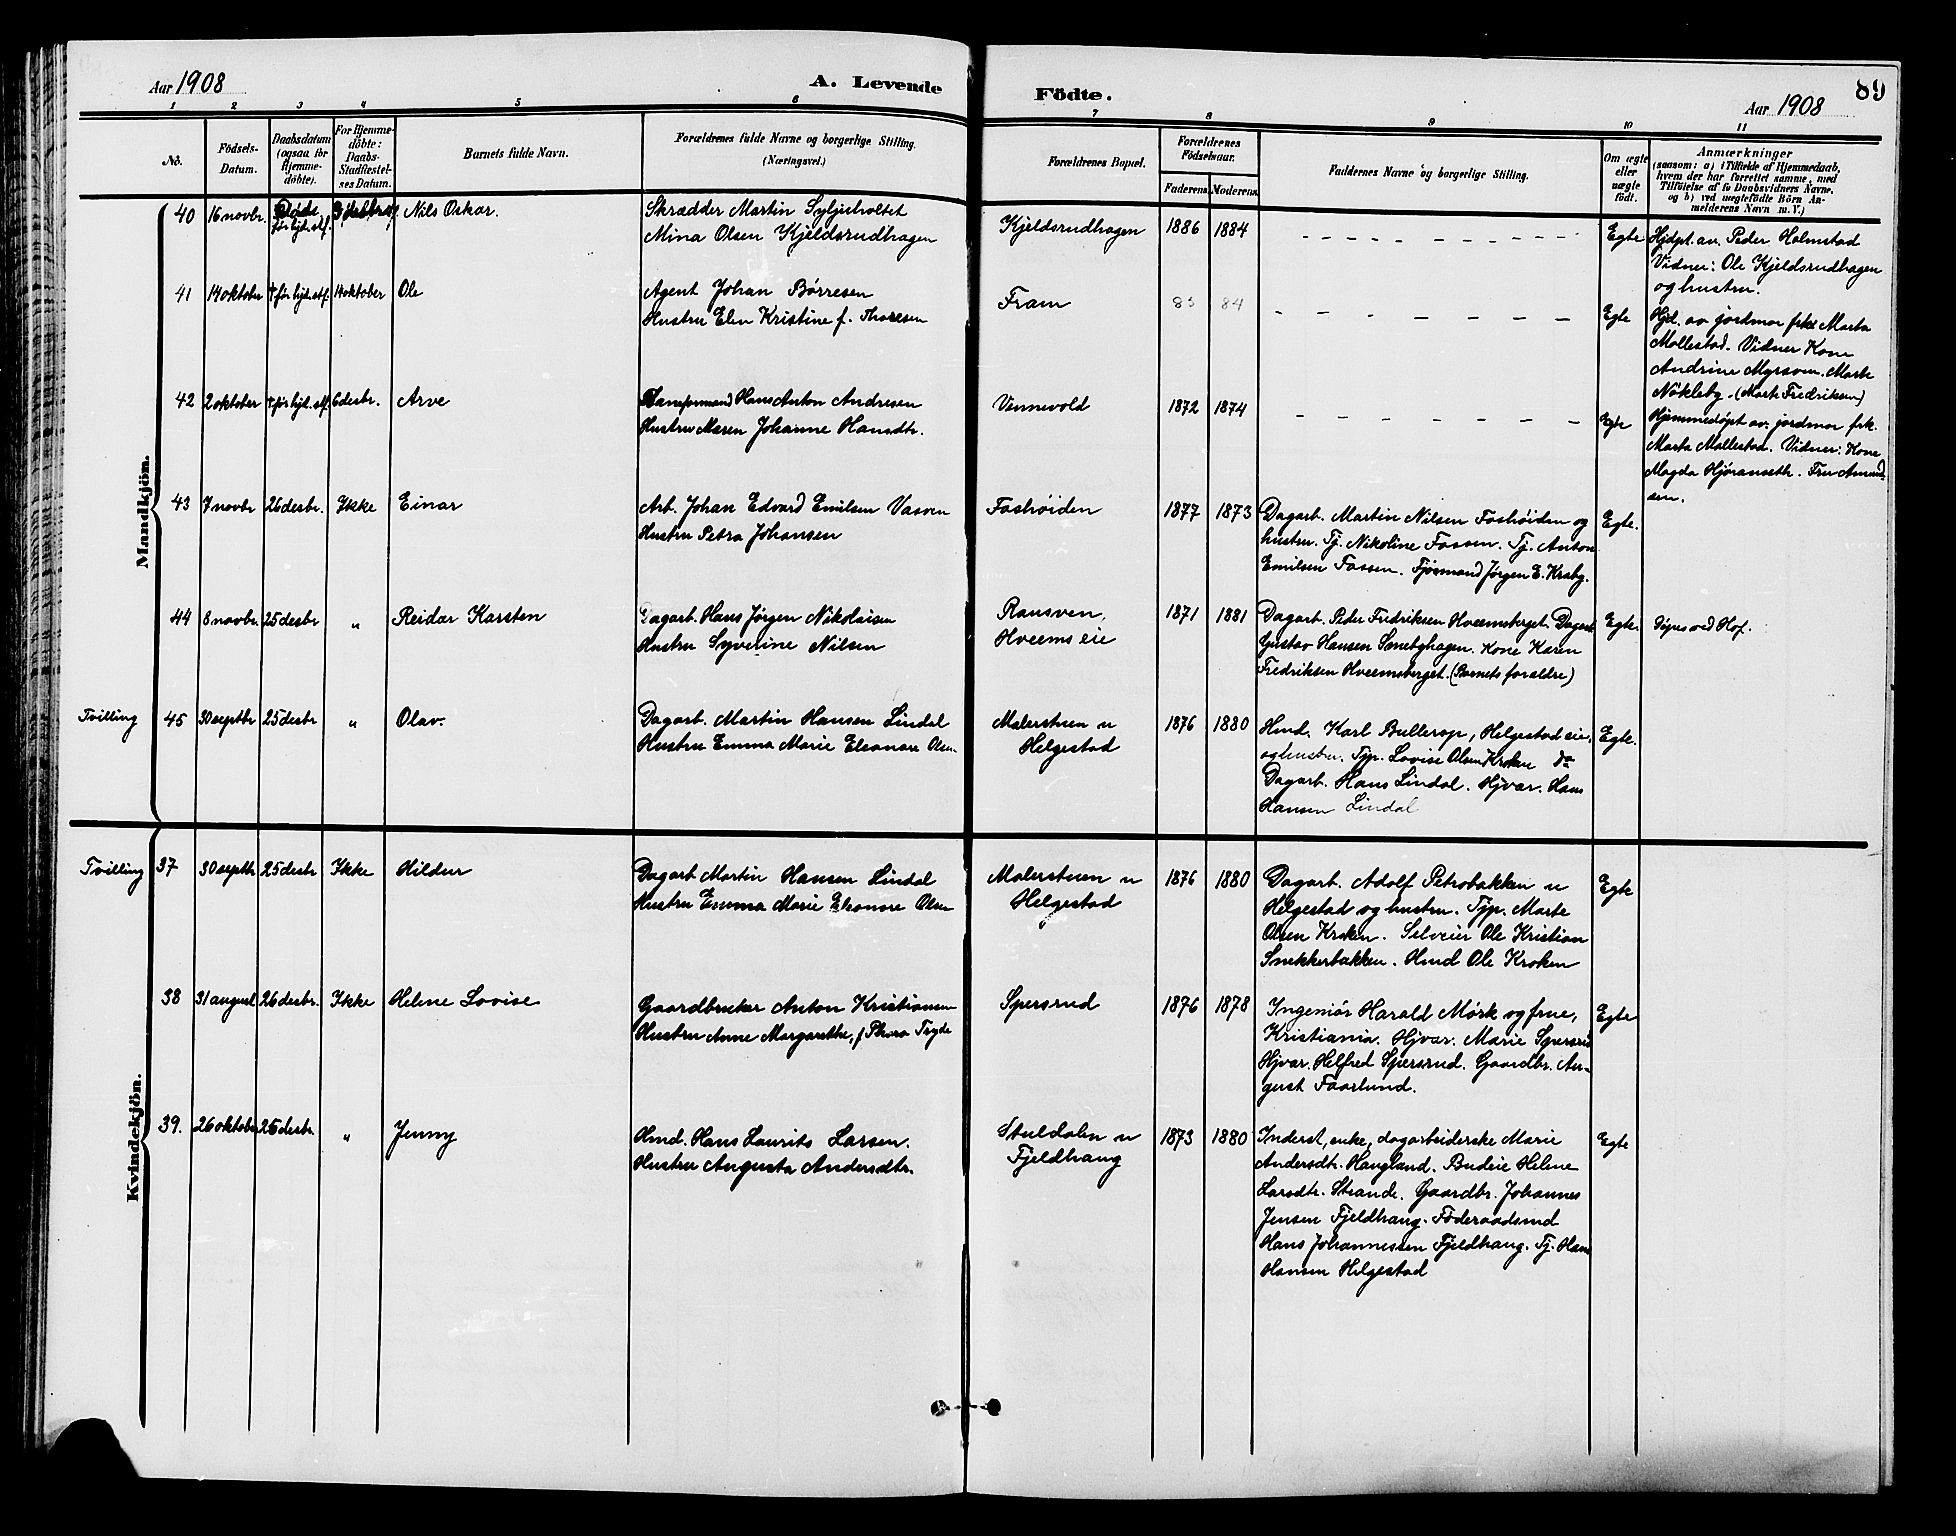 Aar 1908
A. Levende
Födte.
Aar 1908
89
1 2 3 4 5 6 7 8 9 10 11
No.
Födsels-
Datum.
Daabsdatum
(ogsaa for
Hjemme-
döbte).
For Hjemme-
döbte:
Daabs-
Stadfæstel-
ses Datum.
Barnets fulde Navn.
Forældrenes fulde Navne og borgerlige Stilling.
(Næringsvei.)
Forældrenes Bopæl.
Forældrenes
Födselsaar.
Faderens. Moderens.
Faddernes Navne og borgerlige Stilling.
Om ægte
eller
uægte
födt.
Anmærkninger
(saasom: a) i Tilfælde af Hjemmedaab,
hvem der har forrettet samme, med
Tilföielse af to Daabsvidners Navne.
og b) ved uægtefödte Börn An-
melderens Navn m. V.)
Mandkjön.
40 16 novbr. Døde før hjd. stf. Nils Oskar.
Skrædder Martin Syljuholtet
Mina Olsen Kjeldsrudhagen
Kjeldsrudhagen 1886 1884 Egte
Hjdpt. av. Peder Holmstad
Vidner: Ole Kjeldsrudhagen
og hustru.
41 14 oktober † før hjd. stf. 14 oktober Ole
Agent Johan Børresen
Hustru Elen Kristine f. Thoresen
Fram 83 84 Egte
Hjd. av jordmor frk. Marta
Mollestad. Vidner Kone
Andrine Myrsven. Marte
Nökleby. (Marte Fredriksen)
42 2 oktober † før hjd. stf. 6 desbr. Arve
Hans Anton Andresen
Hustru Maren Johanne Hansdtr.
Vennevold 1872 1874 Egte
Hjemmedøpt av. jordmor frk.
Marta Mollestad. Vidner: Kone
Magda Hjøranseth. Fru Amund-
sen.
43 7 novbr 26 desbr. Ikke Einar
Arb. Johan Edvard Emilsen Vasven
Hustru Petra Johansen
Foshöiden 1877 1873
Dagarb. Martin Nilsen Foshöiden og
hustru. Tj. Nikoline Fossen. Tj. Anton
Emilsen Fossen. Fjösmand Jørgen E. Kraby.
Egte.
44 8 novbr. 25 desbr " Reidar Karsten
Dagarb. Hans Jørgen Nikolaisen
Hustru Syverine Nilsen
Ransven,
Hveems eie
1871 1881
Dagarb. Peder Fredriksen Hveemsberget. Dagarb.
Gustav Hansen Smebyhagen. Kone Karen
Fredriksen Hveemsberget. (Barnets forældre)
Egte.
Døpes ved Hof.
Tvilling 45 30 septbr 25 desbr " Olav.
Dagarb. Martin Hansen Lindal
Hustru Emma Marie Eleonore Olsen
Malerstuen u
Helgestad
1876 1880
Hmd. Karl Bullerop, Helgestad eie,
og hustru. Tjp. Lovise Olsen Kroken do
Dagarb. Hans Lindal. Hjvar. Hans
Hansen Lindal
Egte.
Kvindekjön.
Tvilling 37 30 septbr 25 desbr Ikke Hildur
Dagarb Martin Hansen Lindal
Hustru Emma Marie Eleonore Olsen
Malerstuen u
Helgestad
1876 1880
Dagarb. Adolf Petrobakken u
Helgestad og hustru. Tjp. Marte
Olsen Kroken. Selveier Ole Kristian
Snekkerbakken. Hmd Ole Kroken
Egte
38 31 august 26 desbr. Ikke Helene Lovise
Gaardbruker Anton Kristiansen
Hustru Anne Margarethe, f Thora Tryde
Spersrud 1876 1878
Ingeniör Harald Mørk og frue,
Kristiania. Hjvar. Marie Spersrud
Hjvar. Helfred Spersrud. Gaardbr. Au-
gust Faarlund.
Egte
39. 26 oktober 26 desbr. " Jenny
Hmd. Hans Laurits Larsen.
Hustru Augusta Andersdtr.
Stuldalen u
Fjeldhaug
1873 1880
Inderst, enke, dagarbeiderske Marie
Andersdtr. Haugland. Budeie Helene
Larsdtr. Strande. Gaardbr. Johannes
Jensen Fjeldhaug. Föderaadsmd
Hans Johannessen Fjeldhaug. Tj. Hans
Hansen Helgestad
Egte